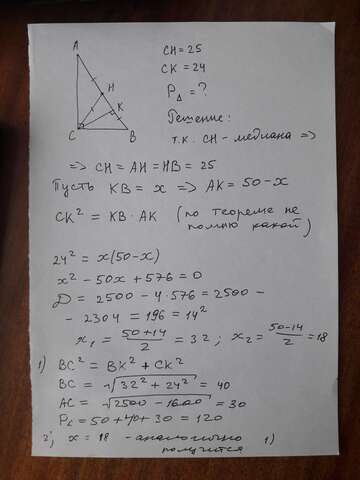 A
H
K
C
B
CH = 25
CK = 24
P△ = ?
Решение:
т.к. CH - медиана =>
=> CH = AH = HB = 25
Пусть KB = x => AK = 50 - x
CK² = KB · AK (по теореме не
помню какой)
24² = x(50-x)
x² - 50x + 576 = 0
D = 2500 - 4·576 = 2500 -
- 2304 = 196 = 14²
x₁ = (50+14)/2 = 32; x₂ = (50-14)/2 = 18
1) BC² = BK² + CK²
BC = √(32² + 24²) = 40
AC = √(2500 - 1600) = 30
P△ = 50 + 40 + 30 = 120
2) x = 18 - аналогично 1)
получится